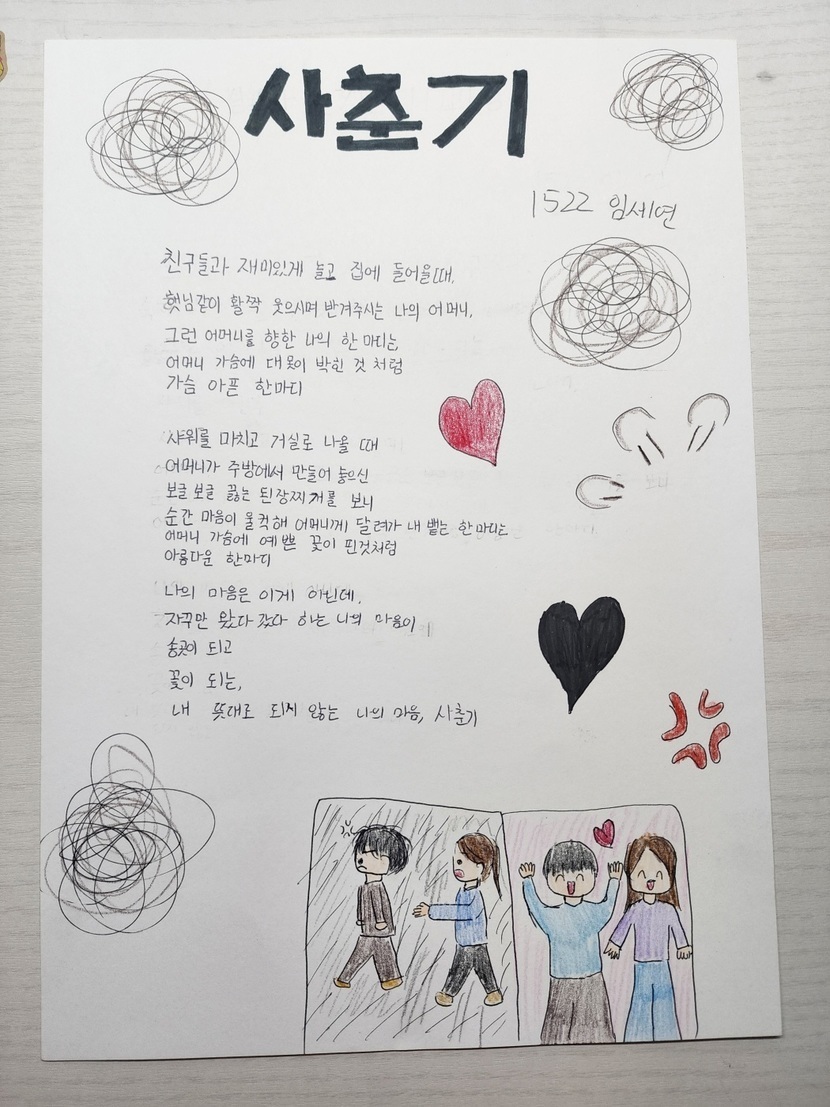 사춘기
1522 임세연
친구들과 재미있게 놀고 집에 들어올때,
햇님같이 활짝 웃으시며 반겨주시는 나의 어머니,
그런 어머니를 향한 나의 한 마디는
어머니 가슴에 대못이 박힌 것 처럼
가슴 아픈 한마디
샤워를 마치고 거실로 나올 때
어머니가 주방에서 만들어 놓으신
보글보글 끓는 된장찌개를 보니
순간 마음이 울컥해 어머니께 달려가 내 뱉는 한마디는
어머니 가슴에 예쁜 꽃이 핀것처럼
아름다운 한마디
나의 마음은 이게 아닌데,
자꾸만 왔다 갔다 하는 나의 마음이
송곳이 되고
꽃이 되는,
내 뜻대로 되지 않는 나의 마음, 사춘기